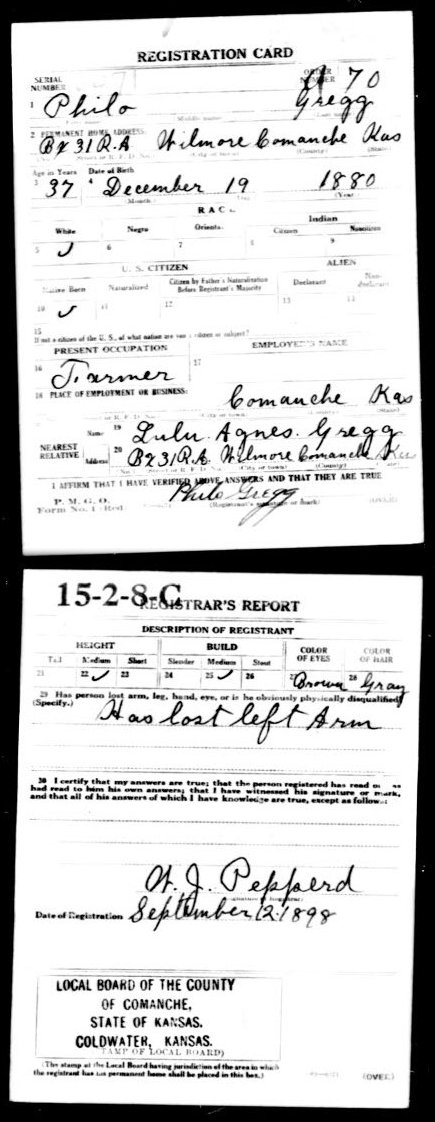 REGISTRATION CARD
SERIAL NUMBER ORDER NUMBER A 70
1 Philo Gregg
2 PERMANENT HOME ADDRESS:
Bx 31 R.A Wilmore Comanche Kas
Age in Years Date of Birth
3 37 4 December 19 1880
(Month.) (Year.)
RACE
White Negro Oriental Indian
Citizen Noncitizen
5 ✓ 6 7 8 9
U. S. CITIZEN ALIEN
Native Born Naturalized Citizen by Father's Naturalization Before Registrant's Majority Declarant Non-declarant
10 ✓ 11 12 13
15
If not a citizen of the U. S., of what nation are you a citizen or subject?
PRESENT OCCUPATION EMPLOYER'S NAME
16 Farmer 17
18 PLACE OF EMPLOYMENT OR BUSINESS:
Comanche Kas
NEAREST RELATIVE Name 19 Lulu Agnes Gregg
Address 20 Bx 31 R.A. Wilmore Comanche Kas
I AFFIRM THAT I HAVE VERIFIED ABOVE ANSWERS AND THAT THEY ARE TRUE
P. M. G. O.
Form No. 1 (Red) Philo Gregg
(Registrant's signature or mark) (OVER)
15-2-8-C
REGISTRAR'S REPORT
DESCRIPTION OF REGISTRANT
HEIGHT BUILD COLOR OF EYES COLOR OF HAIR
Tall Medium Short Slender Medium Stout
21 22 ✓ 23 24 25 ✓ 26 27 Brown 28 Gray
29 Has person lost arm, leg, hand, eye, or is he obviously physically disqualified?
(Specify.) Has lost left Arm
30 I certify that my answers are true; that the person registered has read or has
had read to him his own answers; that I have witnessed his signature or mark,
and that all of his answers of which I have knowledge are true, except as follows:
W. J. Pepperd
(Signature of Registrar)
Date of Registration September 12. 1898
LOCAL BOARD OF THE COUNTY
OF COMANCHE,
STATE OF KANSAS.
COLDWATER, KANSAS.
(STAMP OF LOCAL BOARD)
(The stamp of the Local Board having jurisdiction of the area in which
the registrant has his permanent home shall be placed in this box.)
(OVER)